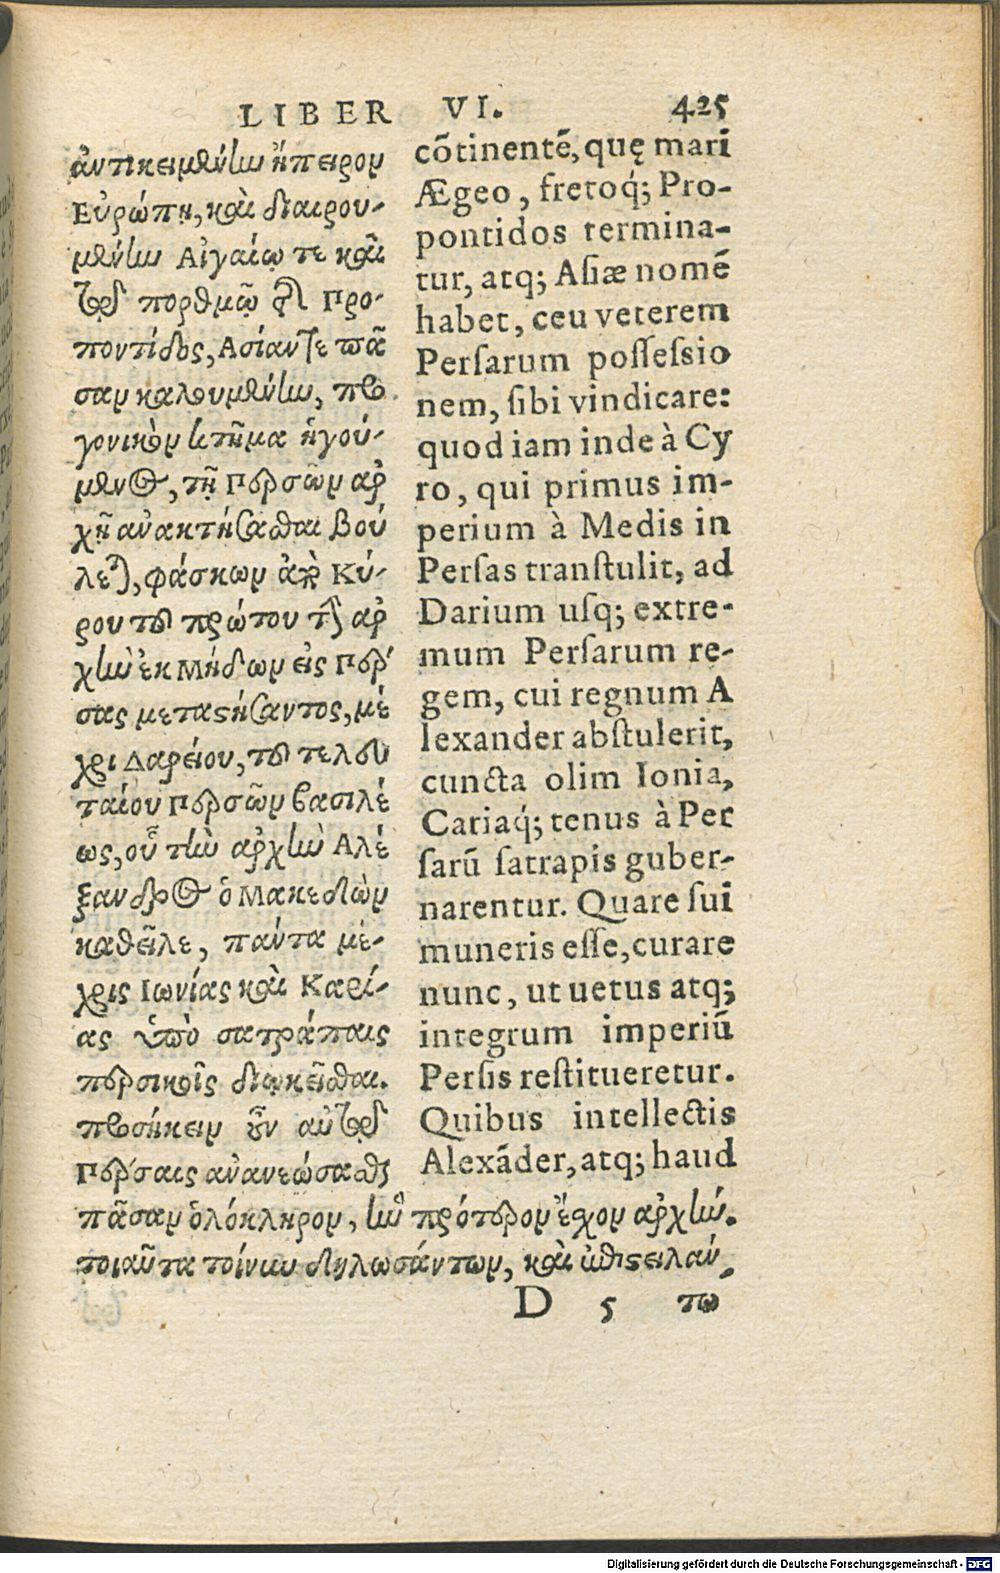 LIBER VI. 425
ἀντικειμένην ἤπειρον
Εὐρώπῃ, καὶ διαιρου-
μένην Αἰγαίῳ τε καὶ
τῷ πορθμῷ τῆς Προ-
ποντίδος, Ασίαν τε πᾶ
σαν καλουμένην, προ
γονικὸν κτῆμα ἡγού-
μενος, τῇ Περσῶν ἀρ
χῇ ἀνακτήσασθαι βού
λεται, φάσκων ἀπὸ Κύ-
ρου τοῦ πρώτου τὴν ἀρ
χὴν ἐκ Μήδων εἰς Πέρ
σας μεταστήσαντος, μέ
χρι Δαρείου, τοῦ τελευ
ταίου Περσῶν βασιλέ
ως, οὗ τὴν ἀρχὴν Αλέ
ξανδρος ὁ Μακεδὼν
καθεῖλε, πάντα μέ-
χρις Ιωνίας καὶ Καρί-
ας ὑπὸ σατράπαις
περσικοῖς διῳκεῖσθαι.
προσήκειν οὖν αὐτῷ
Πέρσαις ἀνανεώσασθαι
πᾶσαν ὁλόκληρον, ἣν πρότερον ἔχον ἀρχήν.
τοιαῦτα τοίνυν δηλωσάντων, καὶ ἐπιστειλάν,
cōtinentē, quę mari
Ægeo, fretoq́; Pro-
pontidos termina-
tur, atq; Asiæ nomē
habet, ceu veterem
Persarum possessio
nem, sibi vindicare:
quod iam inde à Cy
ro, qui primus im-
perium à Medis in
Persas transtulit, ad
Darium usq; extre-
mum Persarum re-
gem, cui regnum A
lexander abstulerit,
cuncta olim Ionia,
Cariaq́; tenus à Per
sarū satrapis guber-
narentur. Quare sui
muneris esse, curare
nunc, ut uetus atq;
integrum imperiū
Persis restitueretur.
Quibus intellectis
Alexāder, atq; haud
D 5 τω
Digitalisierung gefördert durch die Deutsche Forschungsgemeinschaft - DFG